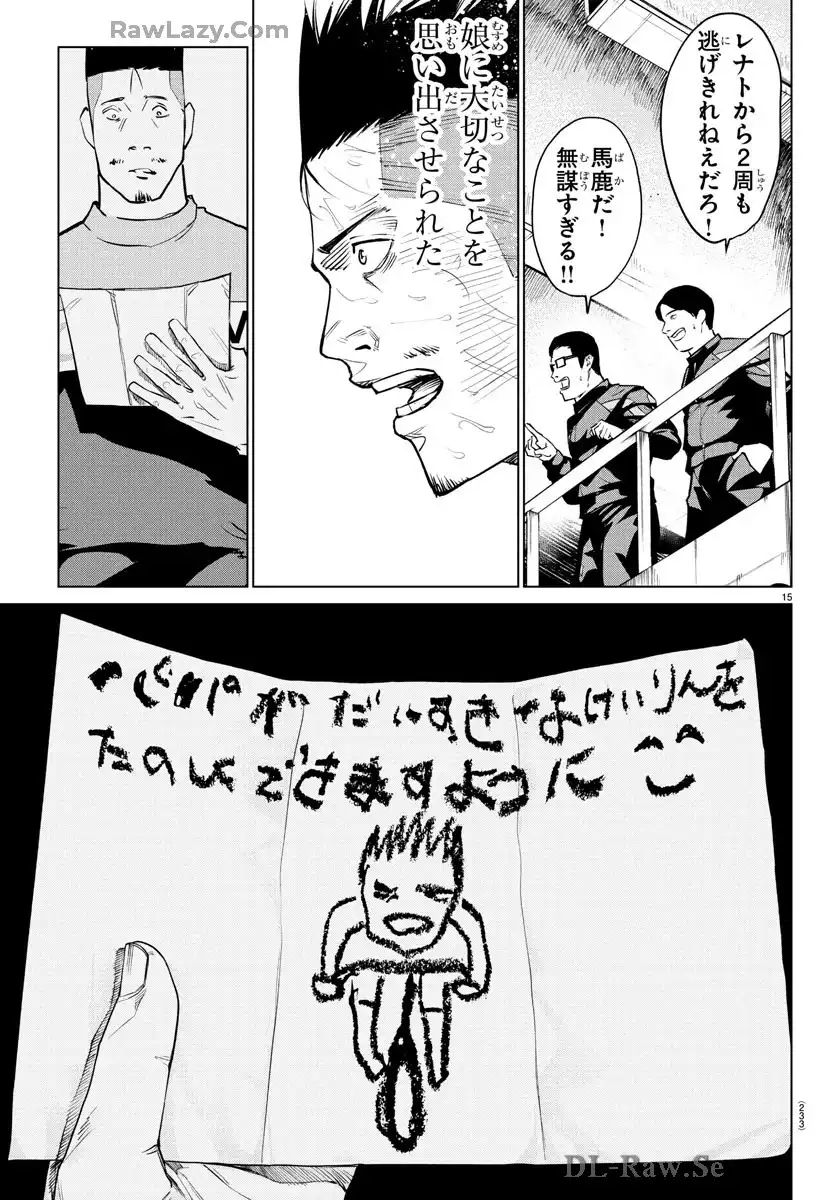 RawLazy.Com
レナトから2周も
逃げきれねえだろ!
馬鹿だ!
無謀すぎる!!
娘に大切なことを
思い出させられた
15
パパがだいすきなけいりんを
たのしくできますように
233
DL-Raw.Se